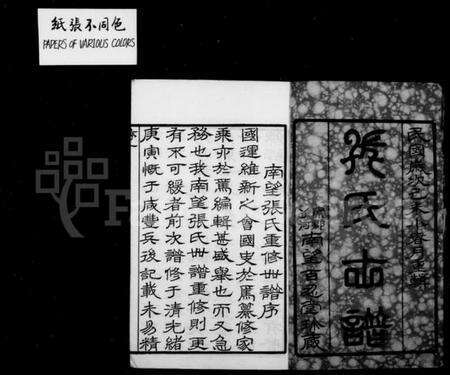 紙張不同色
PAPERS OF VARIOUS COLORS
張氏世譜
南望百忍堂珍藏
南望張氏重修世譜序
國運維新之會國史於焉纂修家
乘亦於焉編輯甚盛舉也而又急
務也我南望張氏世譜重修則更
有不可緩者前次譜修于清光緒
庚寅慨于咸豐兵後記載未易精